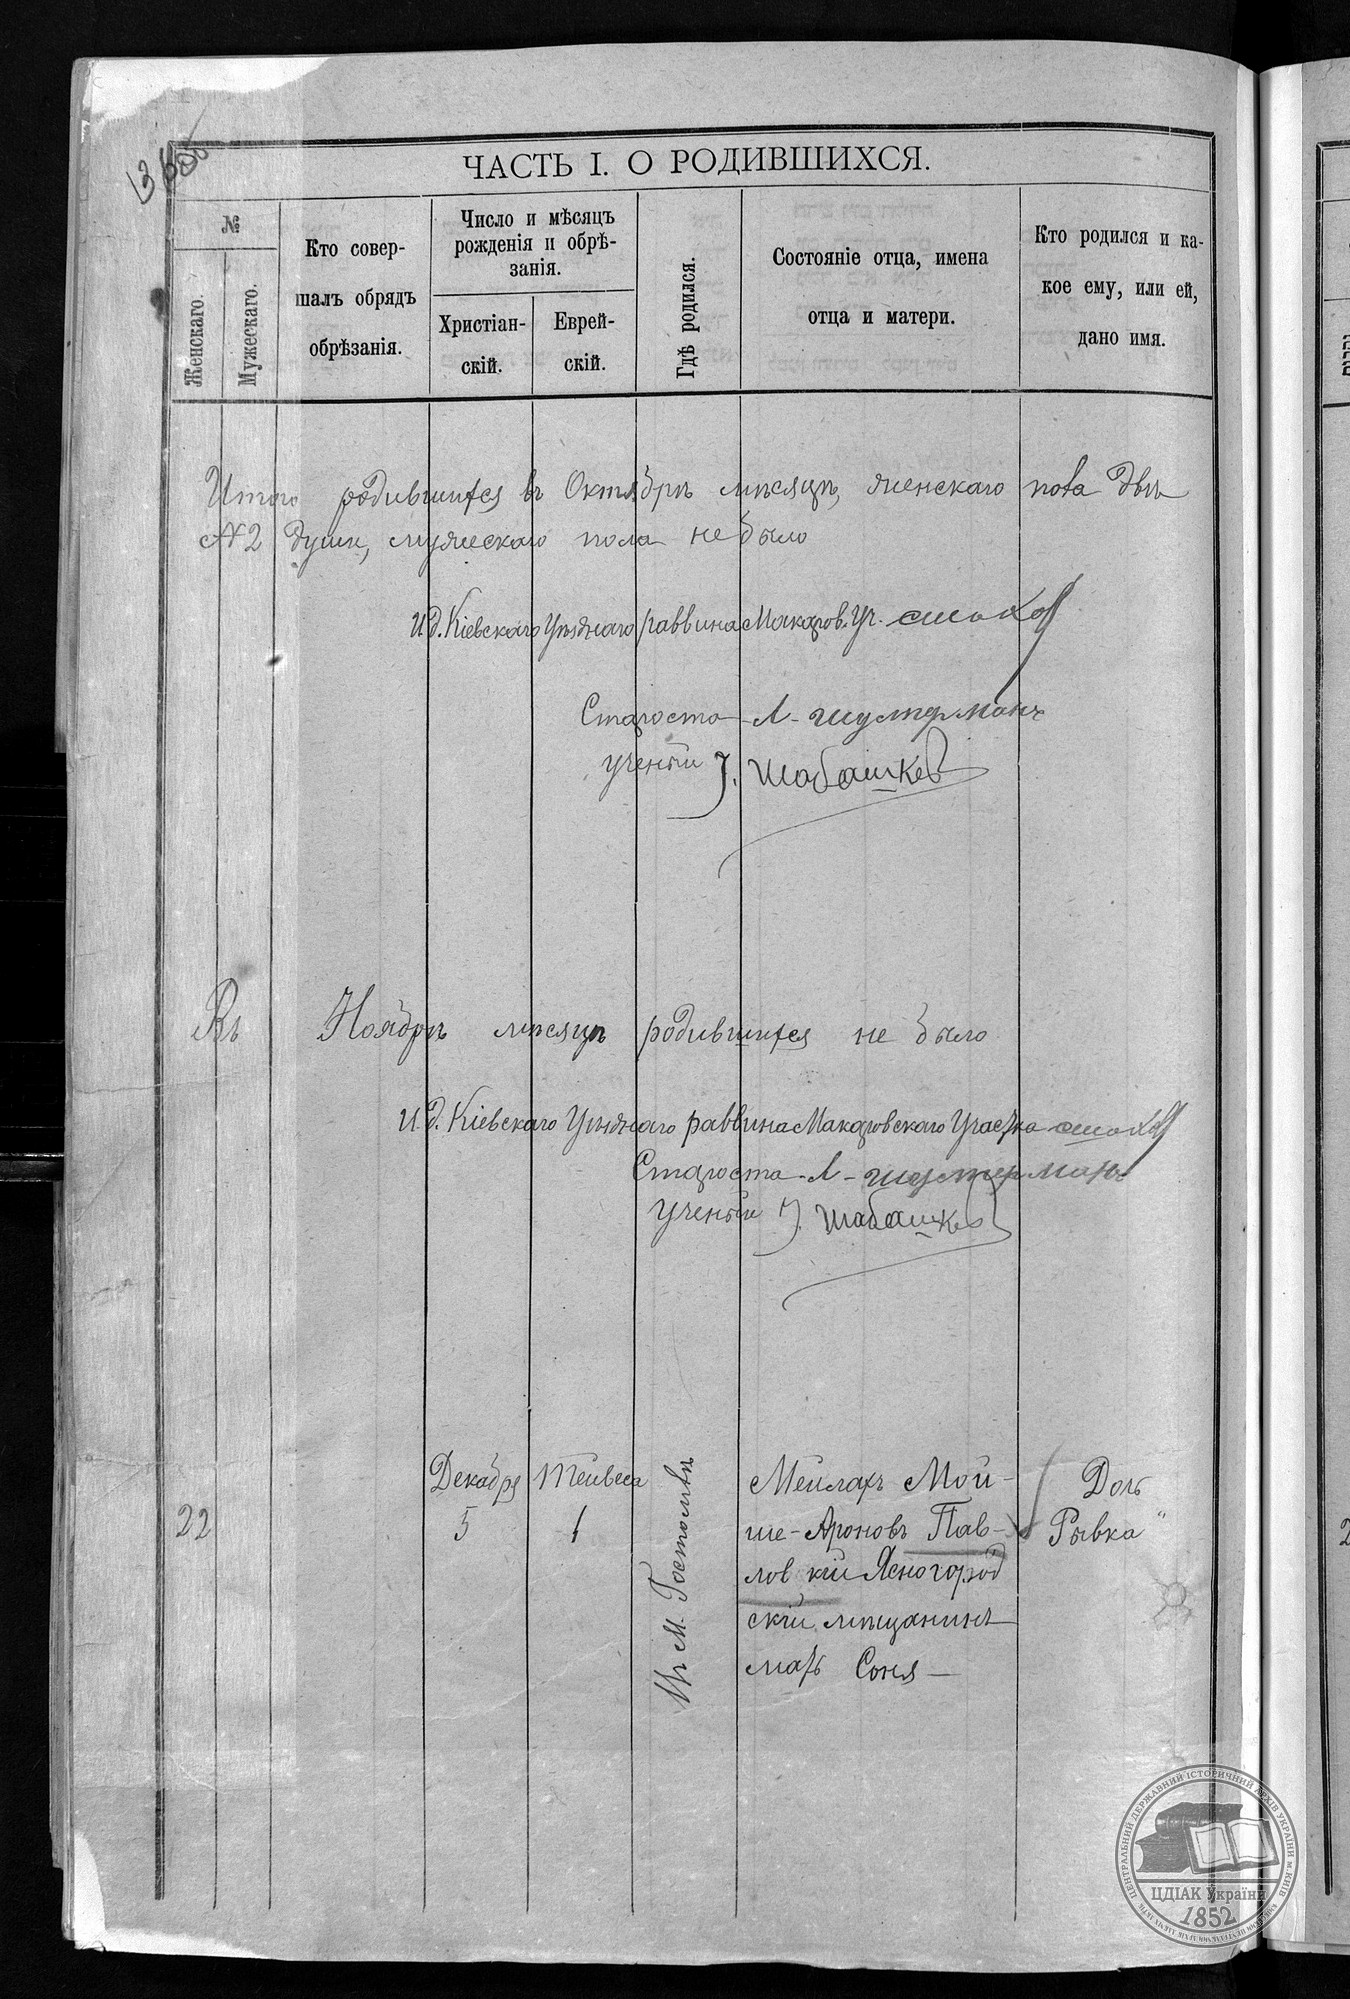 ЧАСТЬ I. О РОДИВШИХСЯ.
№
Женскаго.
Мужескаго.
Кто совер-
шалъ обрядъ
обрѣзанія.
Число и мѣсяцъ
рожденія и обрѣ-
занія.
Христіан-
скій.
Еврей-
скій.
Гдѣ родился.
Состояніе отца, имена
отца и матери.
Кто родился и ка-
кое ему, или ей,
дано имя.
Итого родившихся въ Октябрѣ мѣсяцѣ, женскаго пола двѣ
№2 души, мужескаго пола не было
И. д. Кіевскаго Уѣзднаго раввина Макаров. Уч.
Староста Л. Шустерманъ
Ученый І. Шабашкев
Въ Ноябрѣ мѣсяцѣ родившихся не было
И. д. Кіевскаго Уѣзднаго раввина Макаровскаго Участка
Староста Л. Шустерманъ
Ученый І. Шабашкев
22
Декабря
5
Тейвеса
1
Въ М. Гостомлѣ
Мейлахъ Мой-
ше-Ароновъ Пав-
ловскій Ясногород
скій мѣщанинъ
мать Соня —
Дочь
Рывка
ЦЕНТРАЛЬНИЙ ДЕРЖАВНИЙ ІСТОРИЧНИЙ АРХІВ УКРАЇНИ м. КИЇВ
ЦДІАК України
1852